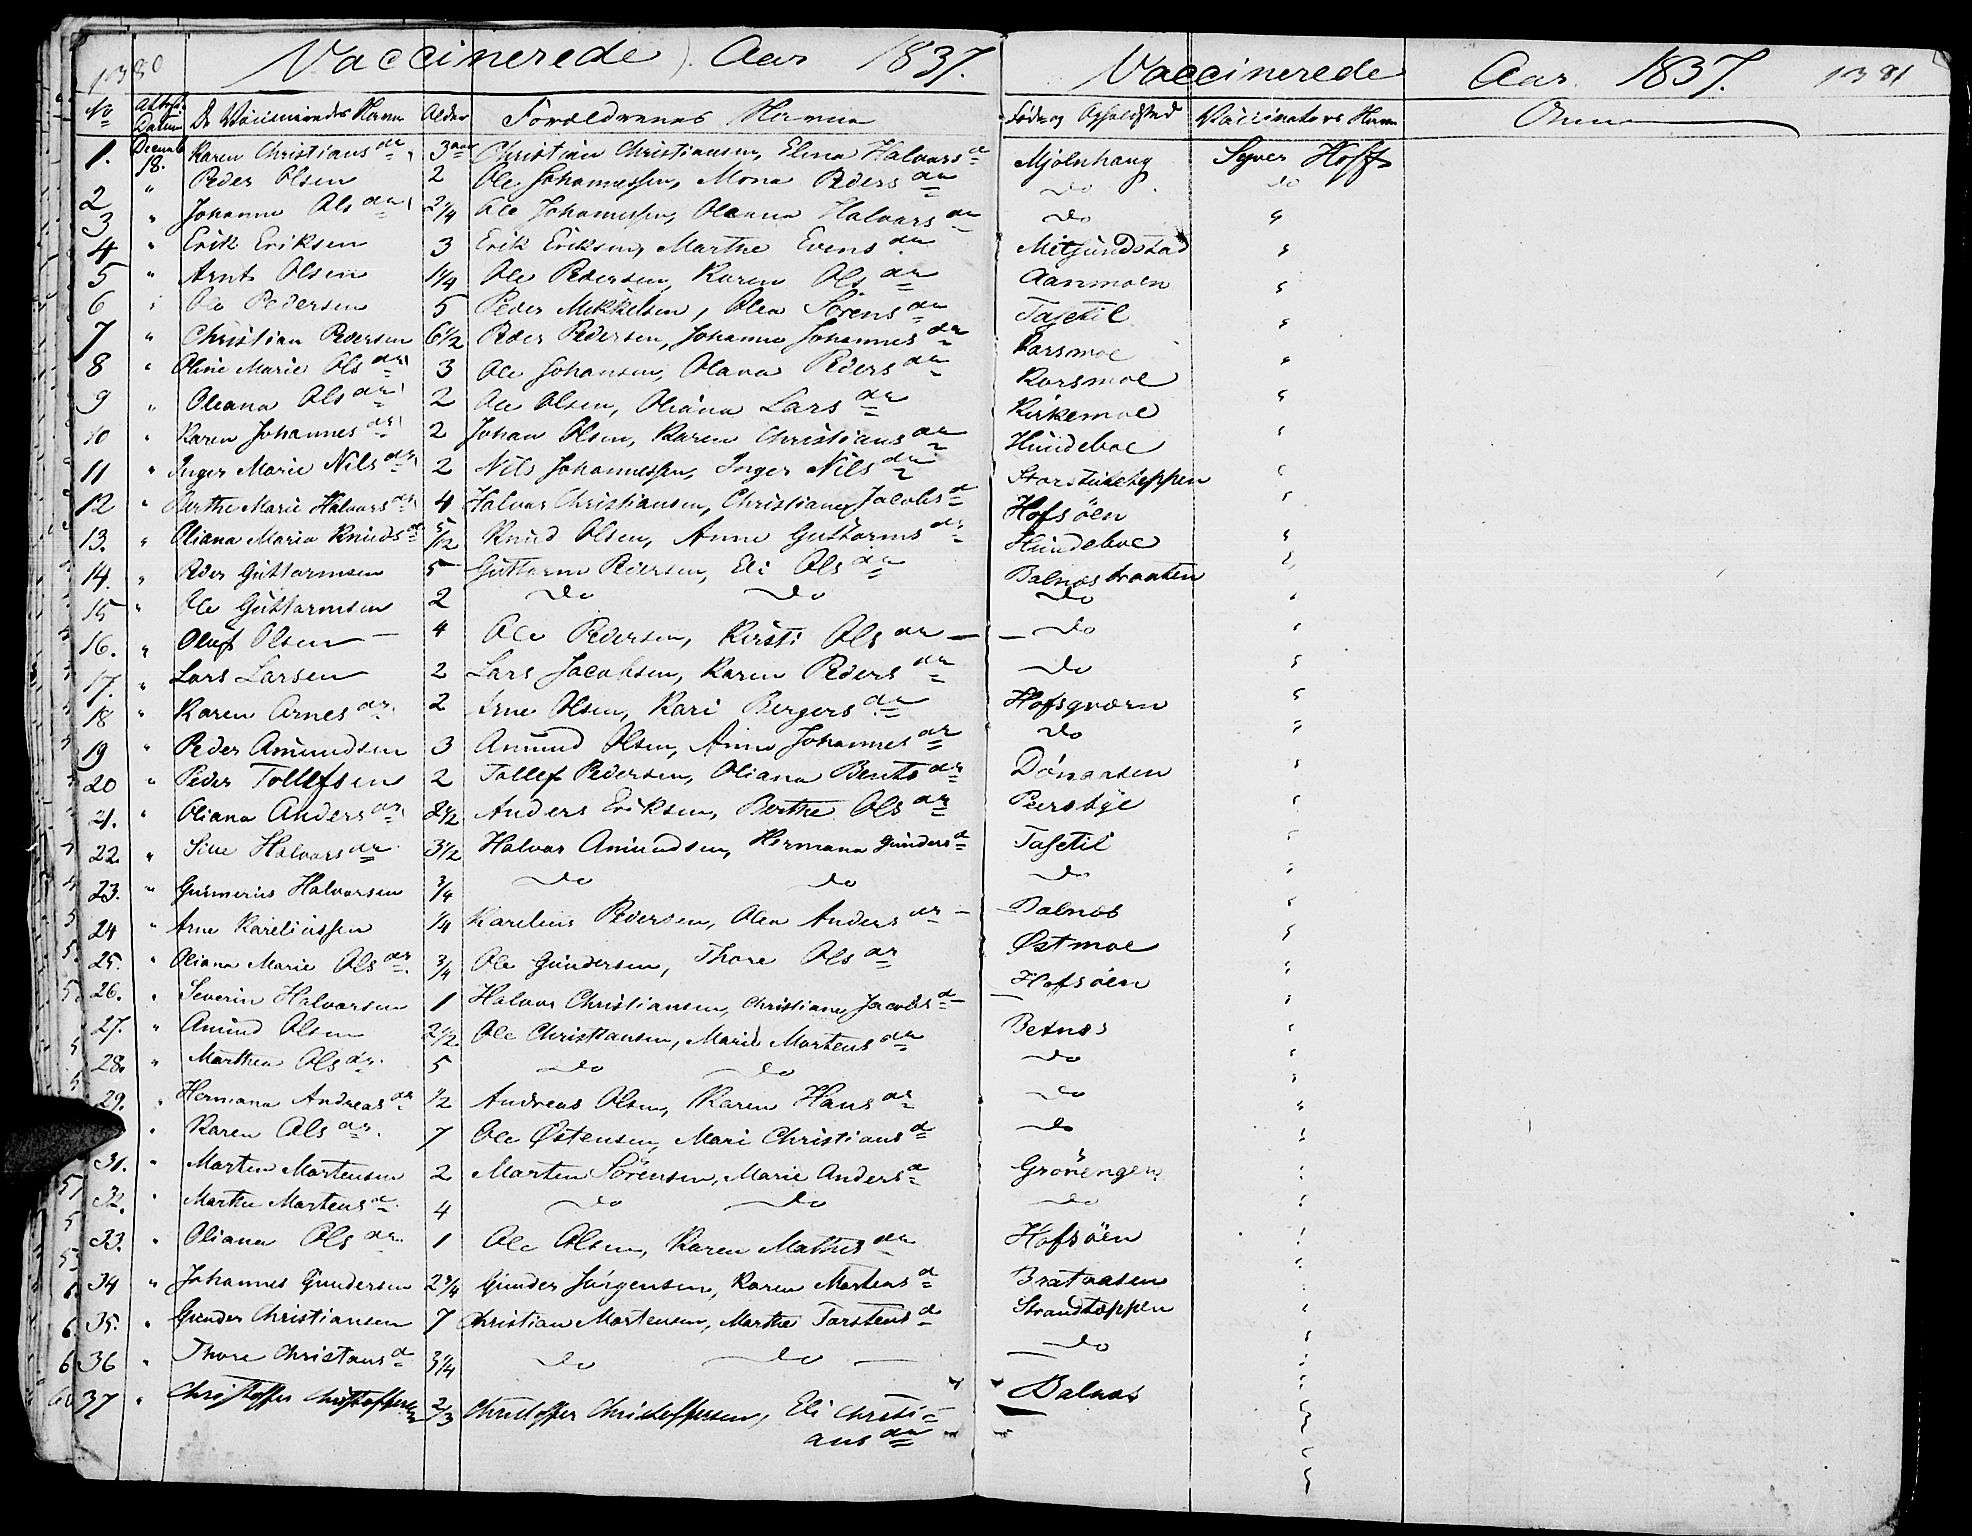 1380 Vaccinerede Aar 1837. Vaccinerede Aar 1837. 1381
No Attest. Datum De Vaccineredes Navne Alder Forældrenes Navne Føde og Opholdsted Vaccinators Navn Anm
1. Decemb 18. Karen Christiansdr 3 aar Christian Christiansen, Elena Halvorsd Mjölnhaug Syver Hoff
2 " Peder Olsen 2 Ole Johannessen, Mona Pedersdr do do
3 " Johanne Olsdr 2 1/4 Ole Johannessen, Oleanna Halvorsdr do "
4 " Erik Eriksen 3 Erik Eriksen, Marthe Evensdr Mitsundstad "
5 " Arnt Olsen 1 1/4 Ole Pedersen, Karen Olsdr Aanmoen "
6 " Ole Pedersen 5 Peder Mikkelsen, Olea Sörensdr Tasetil "
7 " Christian Pedersen 6 1/2 Peder Pedersen, Johanne Johannesdr Korsmoe "
8 " Oline Marie Olsdr 3 Ole Johansen, Olava Pedersdr Korsmoe "
9 " Oleana Olsdr 2 Ole Olsen, Oliana Larsdr Kirkemoe "
10 " Karen Johannesdr 2 Johan Olsen, Karen Christiansdr Hundeboe "
11 " Inger Marie Nilsdr 2 Nils Johannessen, Inger Nilsdr "
12 " Berthe Marie Halvorsdr 4 Halvor Christiansen, Christiane Jacobsd Hofsöen "
13. " Oliana Maria Knudsdr 5/12 Knud Olsen, Anne Guttormsdr Hundeboe "
14. " Peder Guttormsen 5 Guttorm Pedersen, Eli Olsdr Balnesbraaten "
15 " Ole Guttormsen 2 do do do "
16. " Oluf Olsen — 4 Ole Pedersen, Kirsti Olsdr — — do "
17. " Lars Larsen 2 Lars Jacobsen, Karen Pedersdr do "
18 " Karen Arnesdr 2 Arne Olsen, Kari Bergersdr Hofsqværn "
19 " Peder Amundsen 3 Amund Olsen, Anne Johannesdr do "
20 " Peder Tollefsen 2 Tollef Pedersen, Oliana Bentsdr Dönaasen "
21. " Oliana Andersdr 2 1/2 Anders Eriksen, Berthe Olsdr Peersbye "
22. " Sine Halvorsdr 3 1/2 Halvor Amundsen, Hermana Gundersd Tasetil "
23. " Gunnerius Halvorsen 3/4 do do do "
24 " Arne Kareliussen 1/4 Karelius Pedersen, Olea Andersdr — Balnes "
25. " Oliana Marie Olsdr 3/4 Ole Gundersen, Thore Olsdr Östmoe "
26. " Severin Halvorsen 1 Halvor Christiansen, Christiane Jacobsd Hofsöen "
27. " Amund Olsen 2 1/2 Ole Christiansen, Marie Mortensdr Betnes "
28. " Marthea Olsdr. 5 do do do "
29. " Hermana Andreasdr 1/2 Andreas Olsen, Karen Hansdr do "
" Karen Olsdr. 7 Ole Östensen, Mari Christiansd do "
31. " Morten Mortensen 2 Morten Sörensen, Marie Andersd Grönengen "
32. " Marthe Mortensd 4 do do do "
33. " Oliana Olsdr 1 Ole Olsen, Karen Mathisdr Hofsöen "
34 " Johannes Gundersen 2 3/4 Gunder Jörgensen, Karen Mortensd Brataasen "
35. " Gunder Christiansen 7 Christian Mortensen, Marthe Torstensd Strandtoppen "
36 " Thore Christiansd 3 1/4 do do — do "
37 " Christoffer Christoffersen 2/3 Christoffer Christoffersen, Eli Christi- Balnes "
ansdr